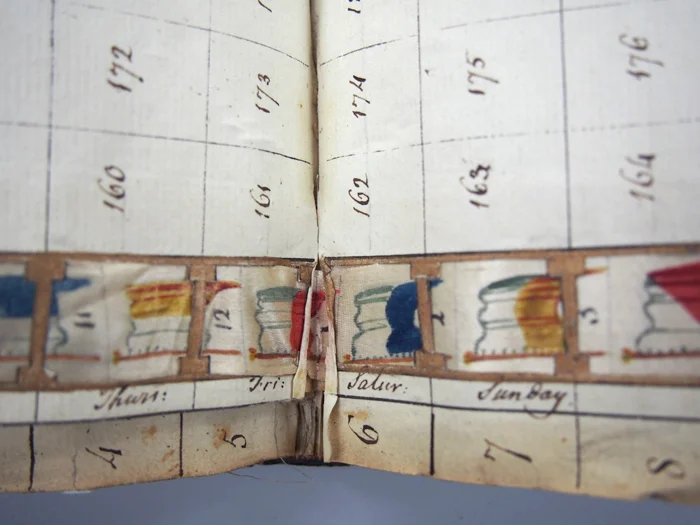 172 173 174 175 176
160 161 162 163 164
11 12 2 3
Thurs: Fri: Satur: Sunday.
4 5 6 7 8